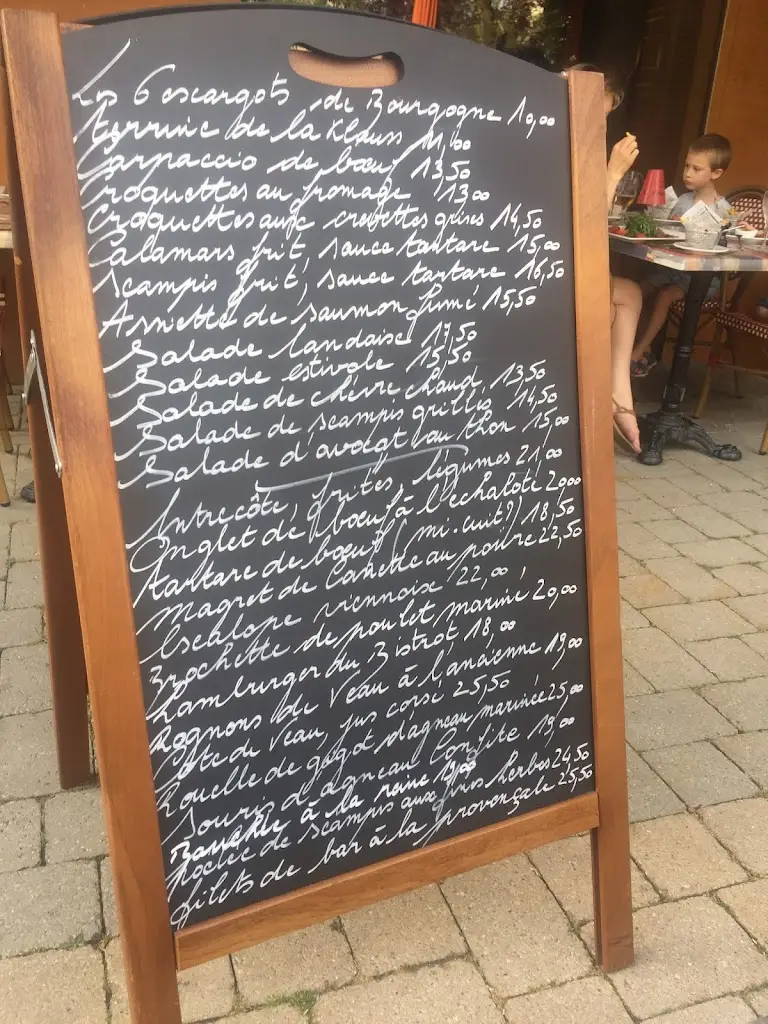 Les 6 escargots de Bourgogne 10,00
terrine de la Klauss 11,00
Carpaccio de bœuf 13,50
Croquettes au fromage 13,00
Croquettes aux crevettes grises 14,50
Calamars frit, sauce tartare 15,00
Scampis frit, sauce tartare 16,50
Assiette de saumon fumé 15,50
Salade landaise 17,50
Salade estivale 15,50
Salade de chèvre chaud 13,50
Salade de scampis grillés 14,50
Salade d'avocat au thon 15,00
Entrecôte, frites, légumes 21,00
Onglet de bœuf à l'echalote 20,00
tartare de bœuf (mi-cuit?) 18,50
Magret de Canette au poivre 22,50
Escalope viennoise 22,00
Brochette de poulet mariné 20,00
hamburger du Bistrot 18,00
Rognons de Veau à l'ancienne 19,00
Côte de Veau, jus corsé 25,50
Rouelle de gigot d'agneau marinée 25,00
Souris d'agneau Confite 19,00
Bouchée à la reine 19,00
Poêlée de scampis aux fines herbes 24,50
filets de bar à la provençale 25,50